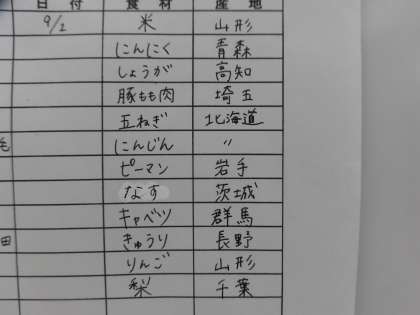 日 付 食 材 産 地
9/2 米 山形
にんにく 青森
しょうが 高知
豚もも肉 埼玉
玉ねぎ 北海道
にんじん 〃
ピーマン 岩手
なす 茨城
キャベツ 群馬
田 きゅうり 長野
りんご 山形
梨 千葉